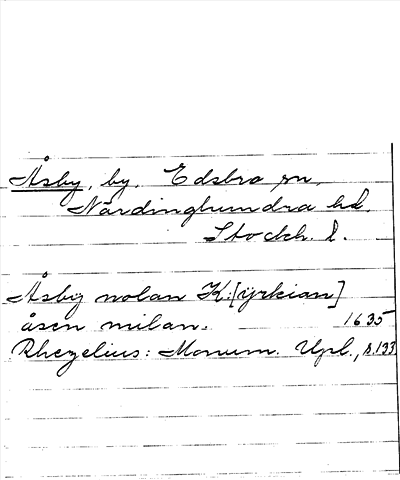 Åsby, by, Edsbro sn,
Närdinghundra hd,
Stockh. l.
Åsby nolan K:[ÿrkian]
åsen milan. 1635
Rhezelius: Monum. Upl., s.133